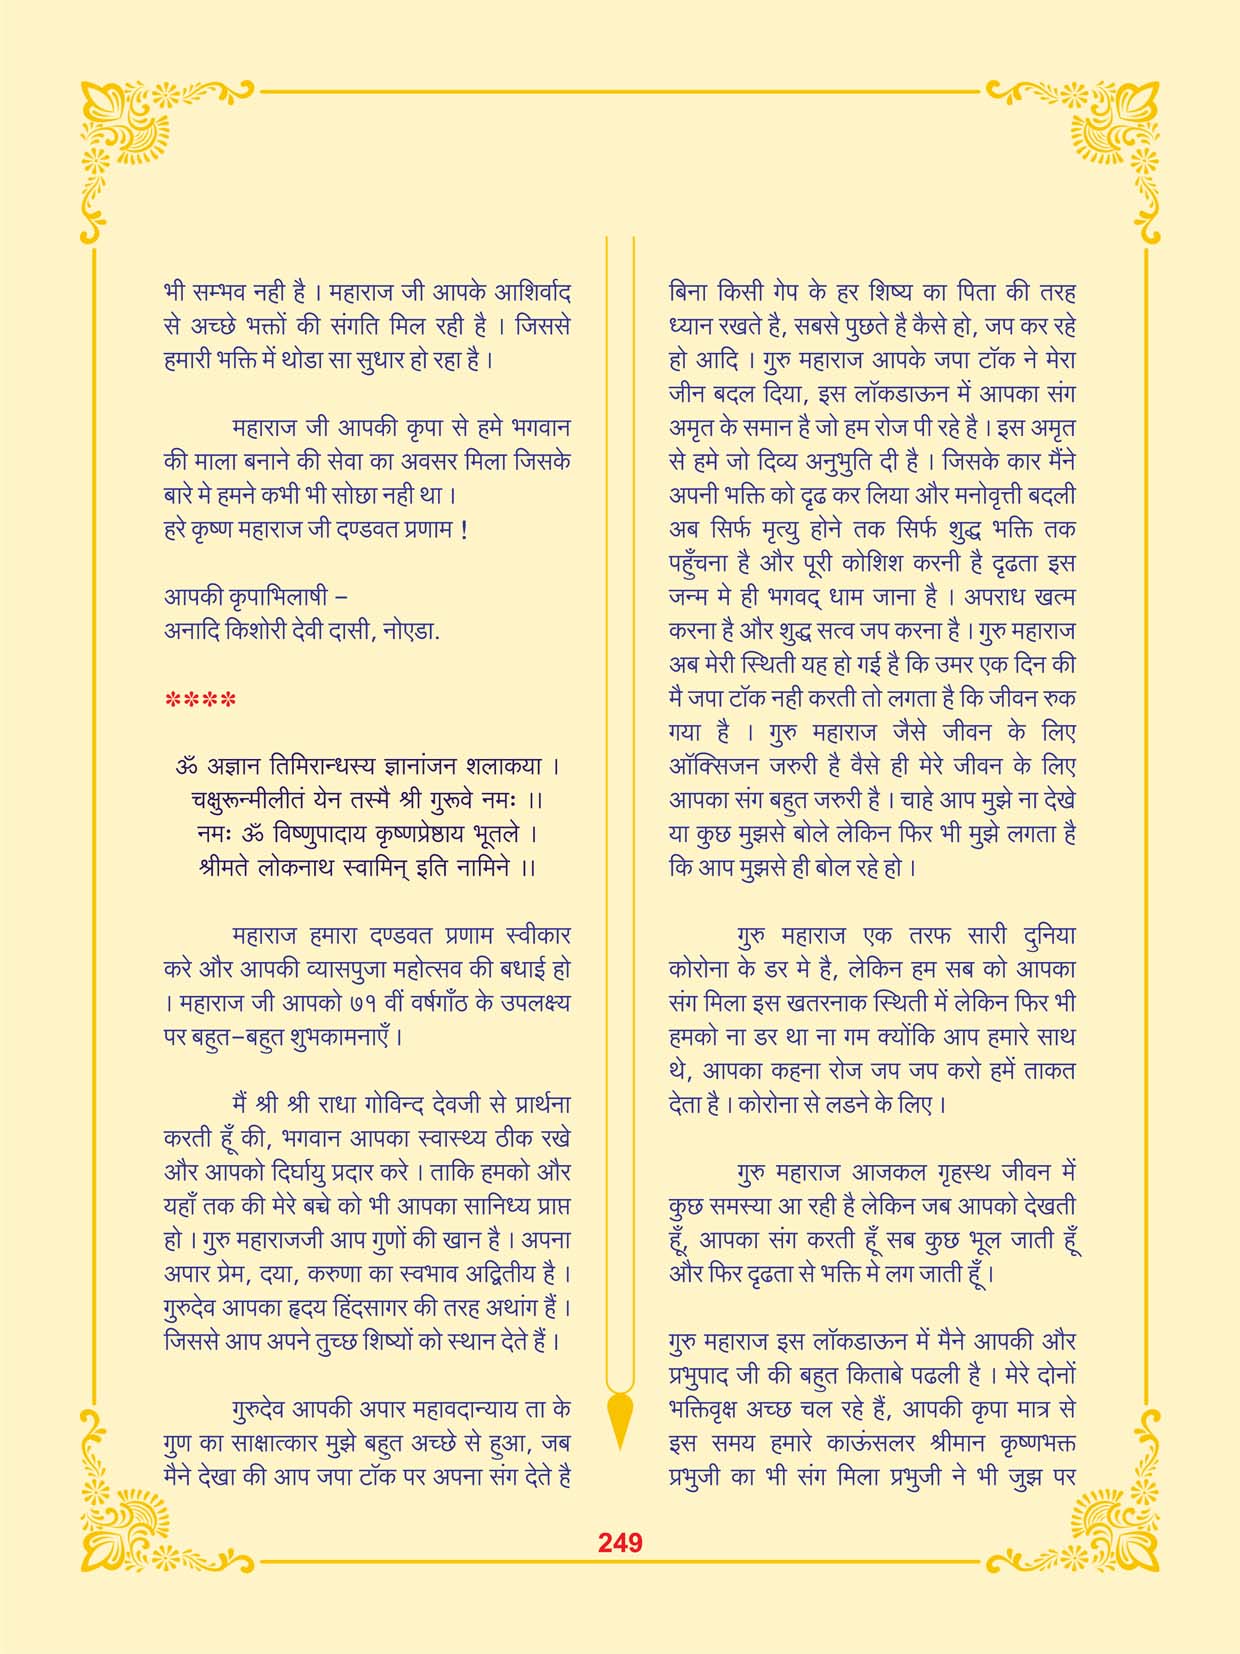 भी सम्भव नही है । महाराज जी आपके आशिर्वाद
से अच्छे भक्तों की संगति मिल रही है । जिससे
हमारी भक्ति में थोडा सा सुधार हो रहा है ।
महाराज जी आपकी कृपा से हमे भगवान
की माला बनाने की सेवा का अवसर मिला जिसके
बारे मे हमने कभी भी सोछा नही था ।
हरे कृष्ण महाराज जी दण्डवत प्रणाम !
आपकी कृपाभिलाषी –
अनादि किशोरी देवी दासी, नोएडा.
****
ॐ अज्ञान तिमिरान्धस्य ज्ञानांजन शलाकया ।
चक्षुरून्मीलीतं येन तस्मै श्री गुरूवे नमः ।।
नमः ॐ विष्णुपादाय कृष्णप्रेष्ठाय भूतले ।
श्रीमते लोकनाथ स्वामिन् इति नामिने ।।
महाराज हमारा दण्डवत प्रणाम स्वीकार
करे और आपकी व्यासपुजा महोत्सव की बधाई हो
। महाराज जी आपको ७१ वीं वर्षगाँठ के उपलक्ष्य
पर बहुत–बहुत शुभकामनाएँ ।
मैं श्री श्री राधा गोविन्द देवजी से प्रार्थना
करती हूँ की, भगवान आपका स्वास्थ्य ठीक रखे
और आपको दिर्घायु प्रदार करे । ताकि हमको और
यहाँ तक की मेरे बच्चे को भी आपका सानिध्य प्राप्त
हो । गुरु महाराजजी आप गुणों की खान है । अपना
अपार प्रेम, दया, करुणा का स्वभाव अद्वितीय है ।
गुरुदेव आपका हृदय हिंदसागर की तरह अथांग हैं ।
जिससे आप अपने तुच्छ शिष्यों को स्थान देते हैं ।
गुरुदेव आपकी अपार महावदान्याय ता के
गुण का साक्षात्कार मुझे बहुत अच्छे से हुआ, जब
मैने देखा की आप जपा टॉक पर अपना संग देते है
बिना किसी गेप के हर शिष्य का पिता की तरह
ध्यान रखते है, सबसे पुछते है कैसे हो, जप कर रहे
हो आदि । गुरु महाराज आपके जपा टॉक ने मेरा
जीन बदल दिया, इस लॉकडाऊन में आपका संग
अमृत के समान है जो हम रोज पी रहे है । इस अमृत
से हमे जो दिव्य अनुभुति दी है । जिसके कार मैंने
अपनी भक्ति को दृढ कर लिया और मनोवृत्ती बदली
अब सिर्फ मृत्यु होने तक सिर्फ शुद्ध भक्ति तक
पहुँचना है और पूरी कोशिश करनी है दृढता इस
जन्म मे ही भगवद् धाम जाना है । अपराध खत्म
करना है और शुद्ध सत्व जप करना है । गुरु महाराज
अब मेरी स्थिती यह हो गई है कि उमर एक दिन की
मै जपा टॉक नही करती तो लगता है कि जीवन रुक
गया है । गुरु महाराज जैसे जीवन के लिए
ऑक्सिजन जरुरी है वैसे ही मेरे जीवन के लिए
आपका संग बहुत जरुरी है । चाहे आप मुझे ना देखे
या कुछ मुझसे बोले लेकिन फिर भी मुझे लगता है
कि आप मुझसे ही बोल रहे हो ।
गुरु महाराज एक तरफ सारी दुनिया
कोरोना के डर मे है, लेकिन हम सब को आपका
संग मिला इस खतरनाक स्थिती में लेकिन फिर भी
हमको ना डर था ना गम क्योंकि आप हमारे साथ
थे, आपका कहना रोज जप जप करो हमें ताकत
देता है । कोरोना से लडने के लिए ।
गुरु महाराज आजकल गृहस्थ जीवन में
कुछ समस्या आ रही है लेकिन जब आपको देखती
हूँ, आपका संग करती हूँ सब कुछ भूल जाती हूँ
और फिर दृढता से भक्ति मे लग जाती हूँ ।
गुरु महाराज इस लॉकडाऊन में मैने आपकी और
प्रभुपाद जी की बहुत किताबे पढली है । मेरे दोनों
भक्तिवृक्ष अच्छ चल रहे हैं, आपकी कृपा मात्र से
इस समय हमारे काऊंसलर श्रीमान कृष्णभक्त
प्रभुजी का भी संग मिला प्रभुजी ने भी जुझ पर
249